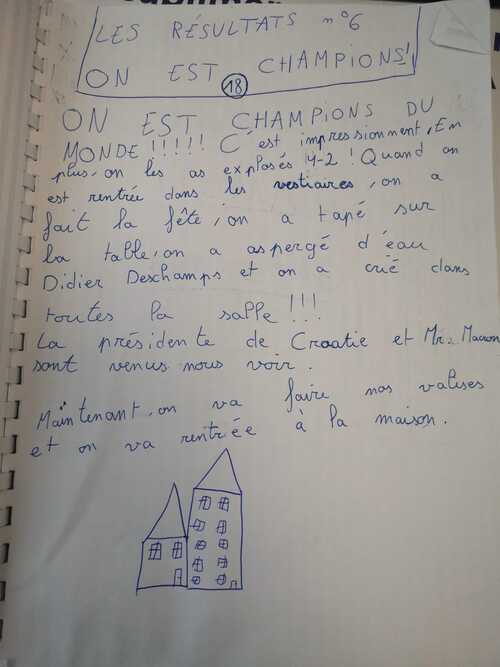 LES RÉSULTATS n°6
ON EST CHAMPIONS!
18
ON EST CHAMPIONS DU
MONDE !!!!! C'est impressionnent, En
plus, on les as explosés 4-2 ! Quand on
est rentrée dans les vestiaires, on a
fait la fête, on a tapé sur
la table, on a aspergé d'eau
Didier Deschamps et on a crié dans
toutes la salle !!!
La présidente de Croatie et Mr. Macron
sont venus nous voir.
Maintenant, on va faire nos valises
et on va rentrée à la maison.